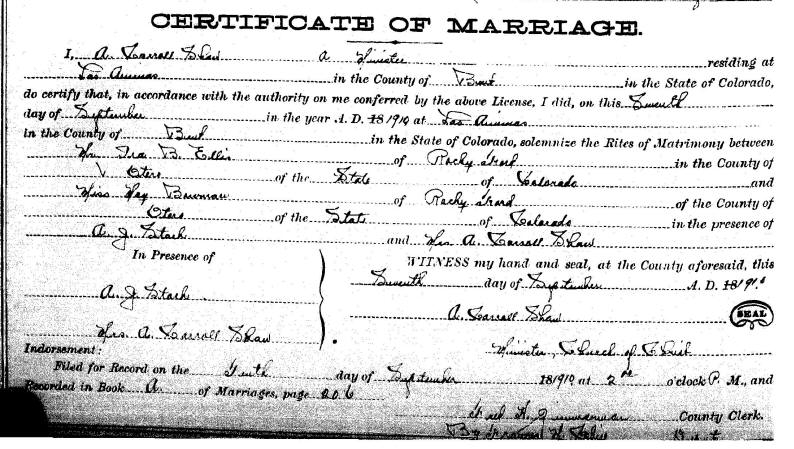 CERTIFICATE OF MARRIAGE.
I, A. Carroll Shaw a Minister residing at
Las Animas in the County of Bent in the State of Colorado,
do certify that, in accordance with the authority on me conferred by the above License, I did, on this Seventh
day of September in the year A. D. 18/1910 at Las Animas
in the County of Bent in the State of Colorado, solemnize the Rites of Matrimony between
Mr. Ira B. Ellis of Rocky Ford in the County of
Otero of the State of Colorado and
Miss May Bowman of Rocky Ford of the County of
Otero of the State of Colorado in the presence of
A. J. Stark and Mrs A. Carroll Shaw
In Presence of
WITNESS my hand and seal, at the County aforesaid, this
Seventh day of September A. D. 18/1910
A. J. Stark
A. Carroll Shaw SEAL
Mrs. A. Carroll Shaw
Minister, Church of Christ
Indorsement:
Filed for Record on the Tenth day of September 18/1910 at 2 o'clock P. M., and
Recorded in Book A. of Marriages, page 206
County Clerk.
By